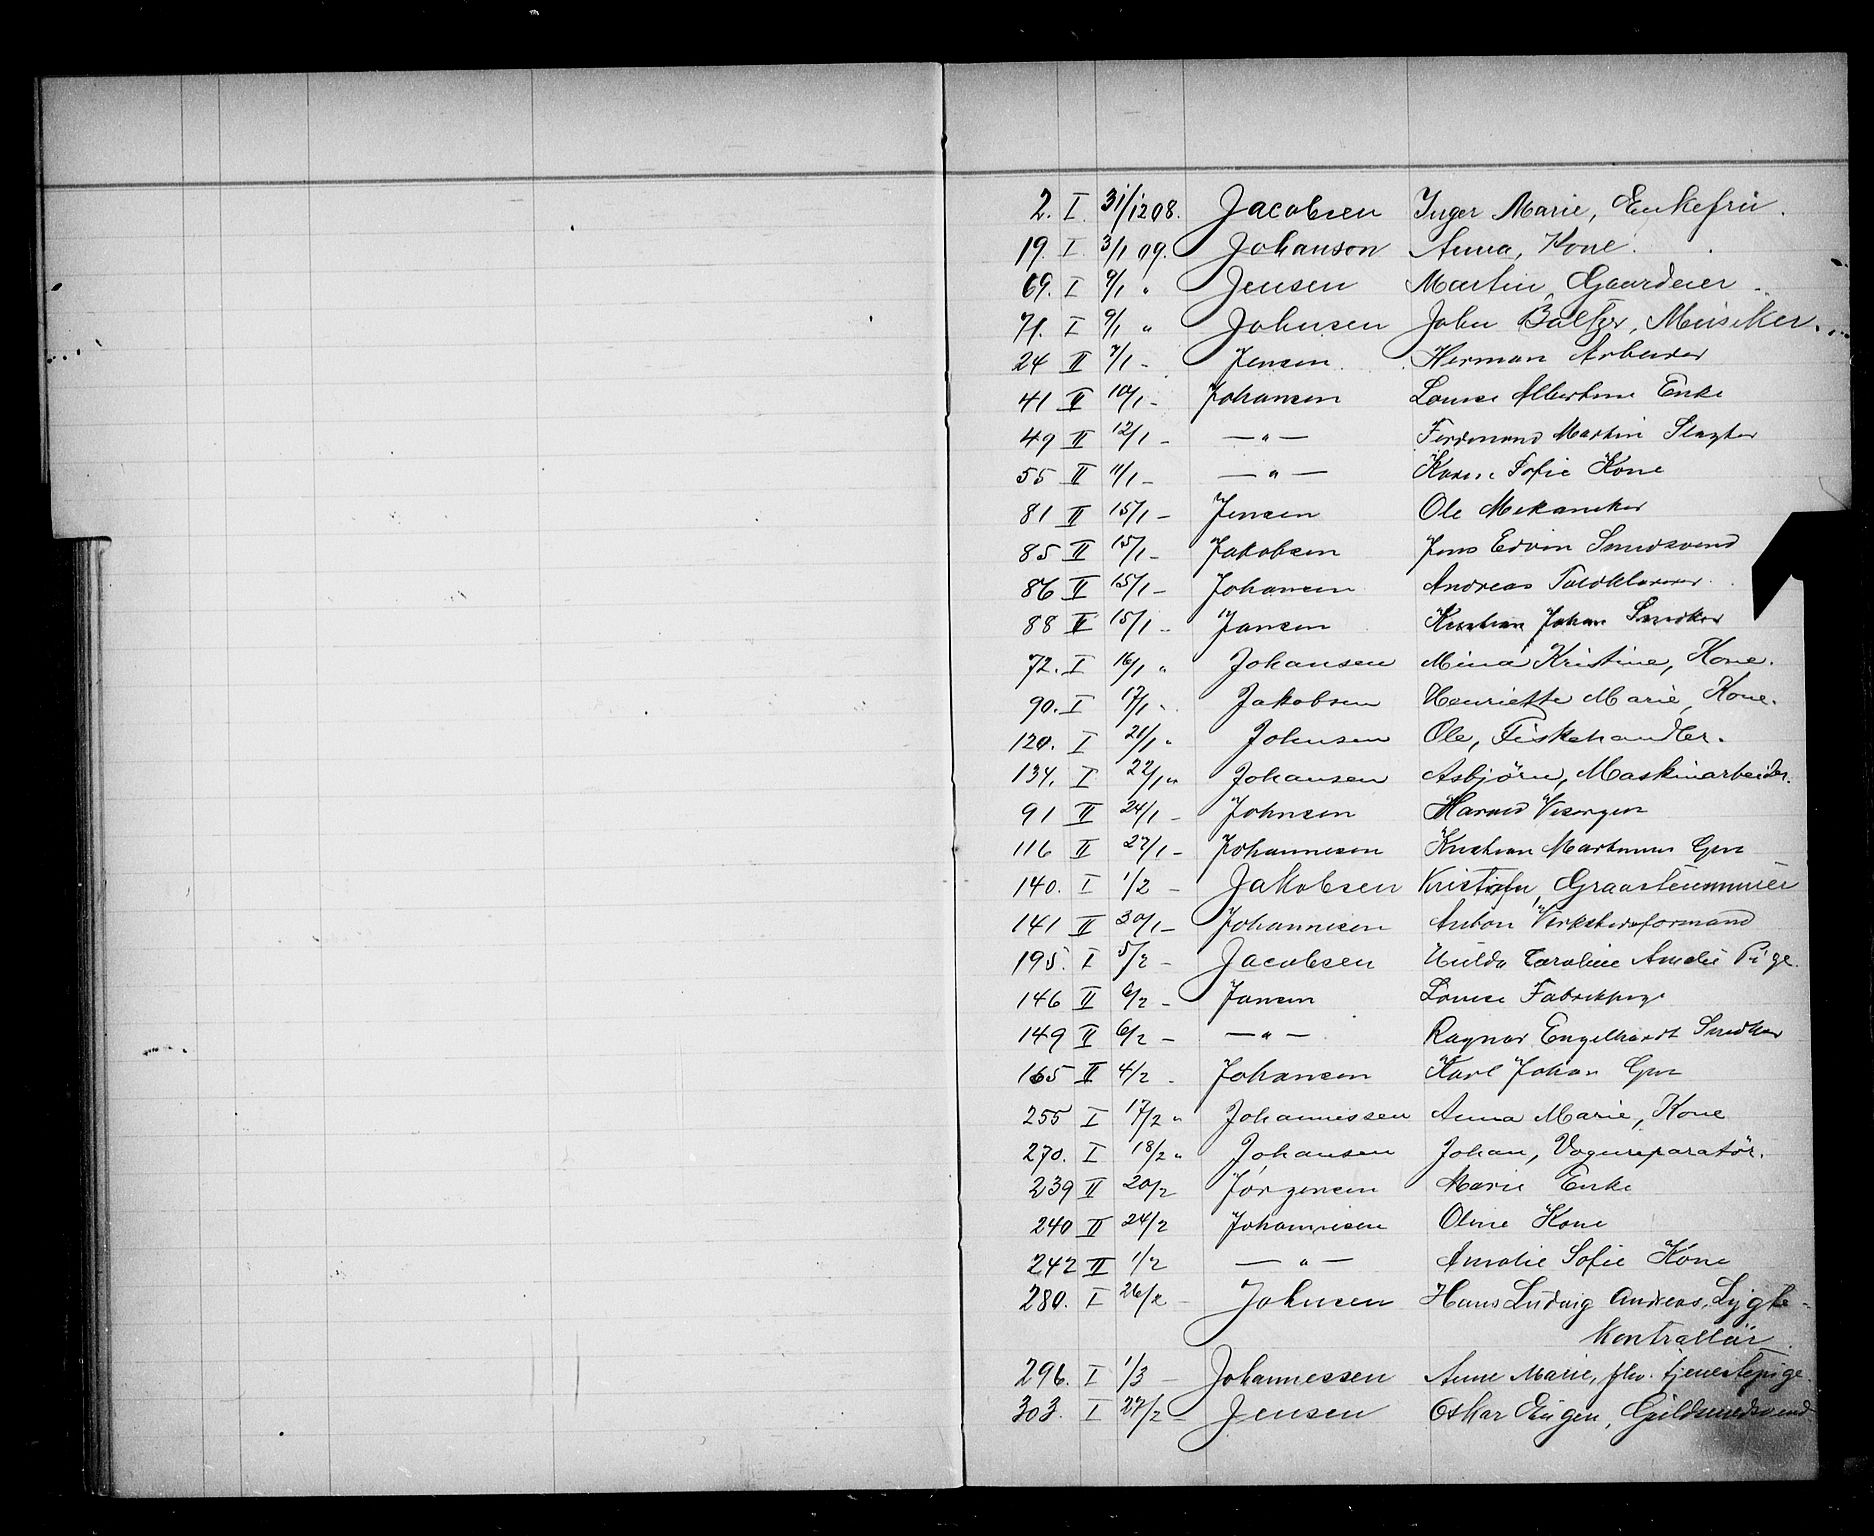 2. I. 31/12 08. Jacobsen Inger Marie, Enkefru.
19. I. 3/1 09. Johanson Anna, Kone.
69. I 9/1 " Jensen Martin, Gaardeier.
71. I 9/1 " Johnsen John Balter, Musiker.
24 II 7/1 - Jensen Herman Arbeider
41 II 10/1 - Johansen Louise Albertine Enke
49 II 12/1 - — " — Ferdinand Martin Slagter
55 II 11/1 - — " — Karen Sofie Kone
81 II 15/1 - Jensen Ole Mekaniker
85 II 15/1 - Jakobsen Jens Edvin Smedsvend
86 II 15/1 - Johansen Andreas Toldklarerer
88 II 15/1 - Jansen Kristian Johan Snedker
72. I 16/1 " Johansen Mina Kristine, Kone.
90. I 17/1 - Jakobsen Henriette Marie, Kone.
120. I 21/1 " Johnsen Ole, Fiskehandler.
134. I 22/1 " Johansen Asbjörn, Maskinarbeider.
91 II 24/1 - Johnsen Harald Visergut
116 II 27/1 - Johannesen Kristian Martinius Gm
140. I 1/2 - Jakobsen Kristofn, Graastensmurer
141 II 30/1 - Johannesen Anton Verkstedsformand
195. I 5/2 - Jacobsen Hulda Caroline Amalie Pige.
146 II 6/2 - Jansen Louise Fabrikpige
149 II 6/2 - — " — Ragnar Engelhardt Snedker
165 II 4/2 - Johansen Karl Johan Gm
255 I 17/2 " Johannessen Anna Marie, Kone
270. I 18/2 " Johansen Johan, Vognreparatör.
239 II 20/2 Jørgensen Marie Enke
240 II 24/2 Johannesen Oline Kone
242 II 1/2 — " — Amalie Sofie Kone
280. I 26/2 - Johnsen Hans Ludvig Andreas, Lygte-
kontrollör.
296. I 1/3 - Johannessen Anne Marie, fhv. tjenestepige.
303. I 27/2 - Jensen Oskar Eugen, Guldsmedsvend